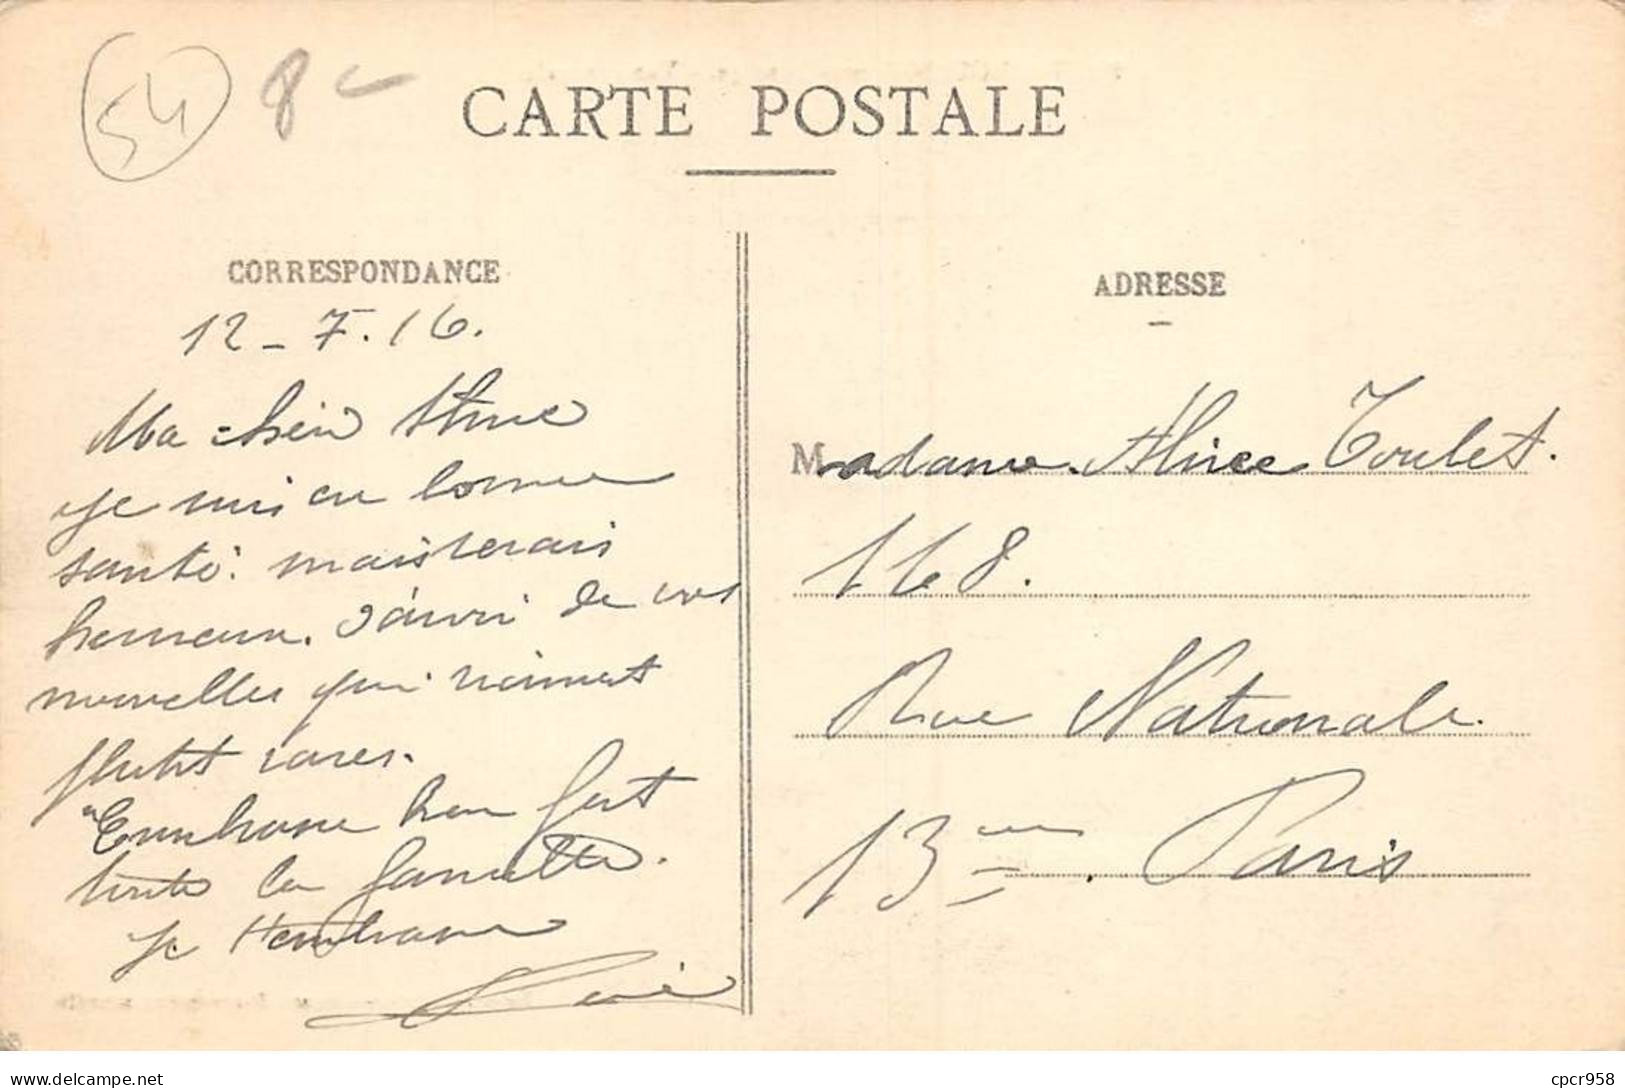 54 8
CARTE POSTALE
CORRESPONDANCE
12-7.16.
Ma chère
je suis en bonne
santé. mais serais
heureux. d'avoir de vos
nouvelles qui viennent
plutôt rares.
Embrasse bien fort
toute la famille.
je t'embrasse
ADRESSE
Madame. Alice Toulet.
168.
Rue Nationale.
13me. Paris
delcampe.net
cpcr958